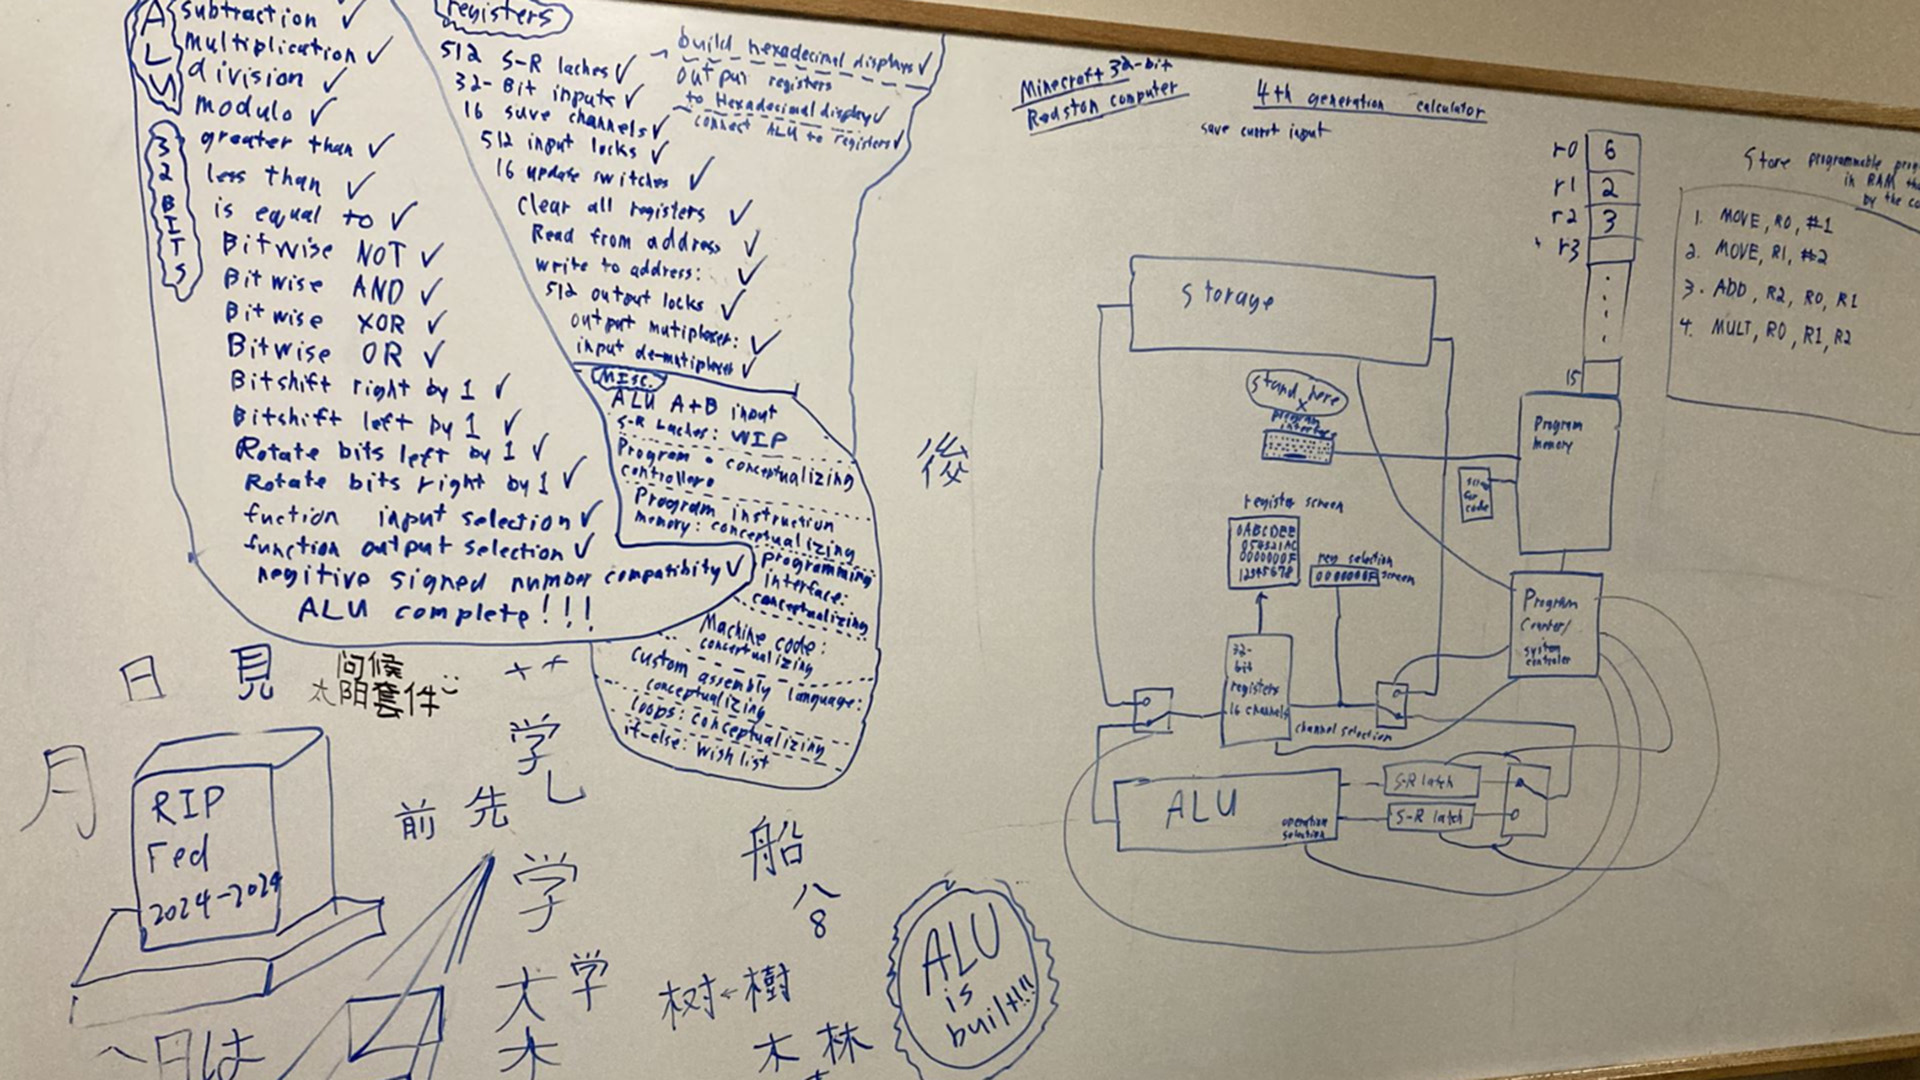 ALU
32 BITS
subtraction ✓
multiplication ✓
division ✓
modulo ✓
greater than ✓
less than ✓
is equal to ✓
Bitwise NOT ✓
Bitwise AND ✓
Bitwise XOR ✓
Bitwise OR ✓
Bitshift right by 1 ✓
Bitshift left by 1 ✓
Rotate bits left by 1 ✓
Rotate bits right by 1 ✓
fuction input selection ✓
function output selection ✓
negitive signed number compatibity ✓
ALU complete!!!
registers
512 S-R laches ✓
32-Bit inputs ✓
16 save channels ✓
512 input locks ✓
16 update switches ✓
Clear all registers ✓
Read from address ✓
write to address: ✓
512 output locks ✓
output mutiplexer: ✓
input de-mutiplexer ✓
build hexadecimal displays ✓
output registers
to Hexadecimal display ✓
connect ALU to registers ✓
Misc.
ALU A+B input
S-R Laches: WIP
Program conceptualizing
controller:
Program instruction
memory: conceptualizing
programming
interface:
conceptualizing
Machine code:
conceptualizing
Custom assembly language:
conceptualizing
loops: conceptualizing
if-else: wish list
Minecraft 32-bit
Redston computer
4th generation calculator
save currot input
r0 6
r1 2
r2 3
r3
15
Store programmable
in RAM
by the
1. MOVE, R0, #1
2. MOVE, R1, #2
3. ADD, R2, R0, R1
4. MULT, R0, R1, R2
Storage
Stand here
x
program
interface
Program
memory
register screen
0ABCDEE
054321AC
0000000F
12345678
reg selection
0000000F screen
Program
Counter/
system
controler
32-
bit
registers
16 channels
channel selection
ALU
operation
selection
S-R latch
S-R latch
後
日 見
问候
太阳套件
月
RIP
Fed
2024-2024
前 先
学
し
学
大 学
木
船
八
8
树←樹
木 林
日は
ALU
is
built!!!